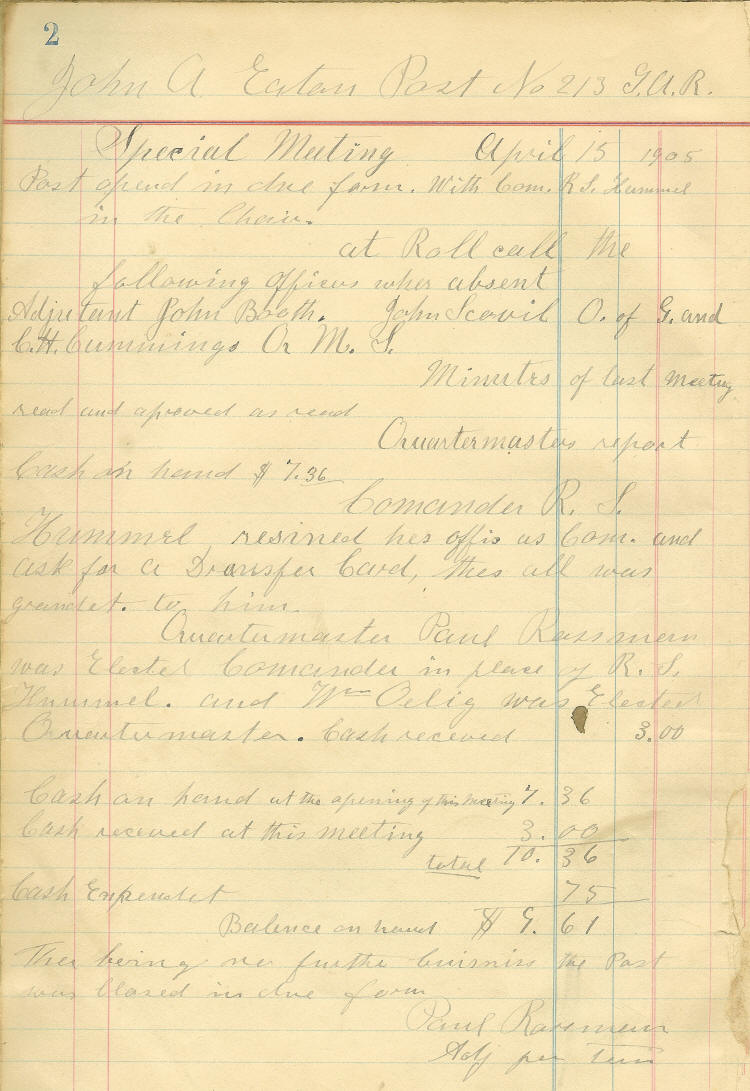 2
John A Eaton Post No 213 G.A.R.
Special Meeting April 15 1905
Post opend in due form. With Com. R S. Hummel
in the Chair.
at Roll call the
following officers wher absent
Adjutant John Booth. John Scovil O. of G. and
C.H. Cummings Qr M. S.
Minutes of last meeting
read and aproved as read
Quartermasters report
Cash on hand $ 7.36
Comander R. S.
Hummel resined hes offis as Com. and
ask for a Transfer Card, thes all was
grandet. to him.
Quartermaster Paul Rassmein
was Elected Comander in place of R. S.
Hummel. and Wm Oelig was Elected
Quartermaster. Cash receved 3.00
Cash on hand at the opening of this Meeting 7.36
Cash receved at this meeting 3.00
total 10.36
Cash Expendet 75
Balence on hand $ 9.61
Ther being no furthe buisniss the Post
was Closed in due form
Paul
Adj per tem